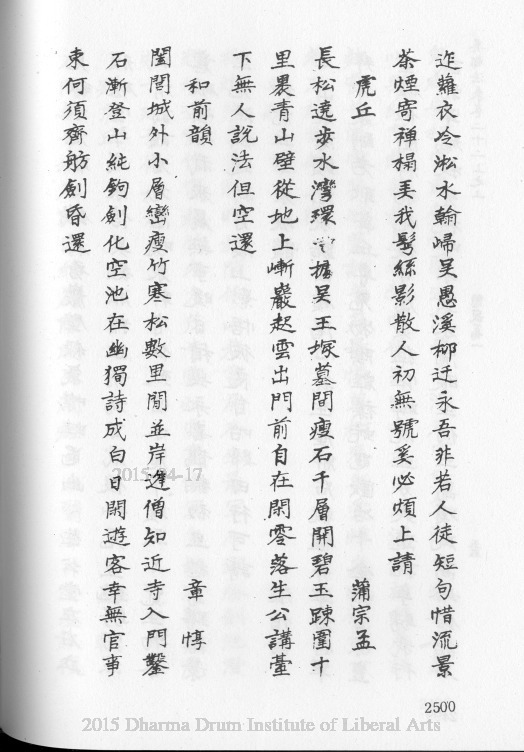 迮蘿衣冷淞水翰歸吳愚溪柳迁永吾非若人徒短句惜流景
茶煙寄禅榻美我鬂絲影散人初無號奚必煩上請
虎丘 蒲宗孟
長松遶步水灣環曾據吴王塚墓間瘦石千層開碧玉踈圍十
里畏青山壁從地上嶄巖起雲出門前自在閑零落生公講臺
下無人說法但空還
和前韻 章惇
闔閭城外小層巒瘦竹寒松數里閒並岸逢僧知近寺入門鑿
石漸登山純鈎劍化空池在幽獨詩成白日閑遊客幸無官事
束何須齊舫劍昏還
2500
2015-04-17
2015 Dharma Drum Institute of Liberal Arts